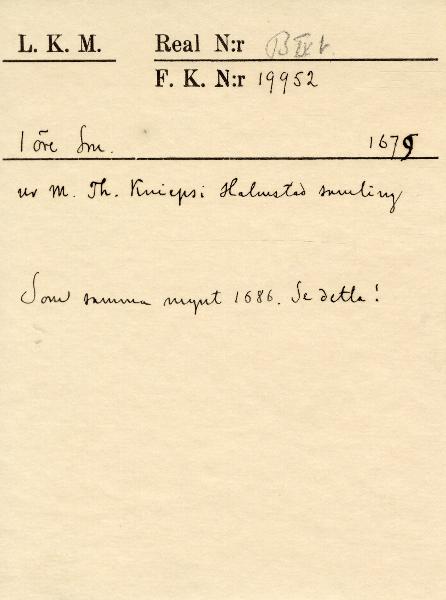 L. K. M. Real N:r B IX b.
F. K. N:r 19952
1 öre Sm. 1675
ur M. Th. Knieps i Halmstad samling
Som samma mynt 1686. Se detta!